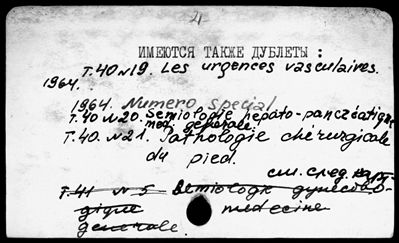 21
ИМЕЮТСЯ ТАКЖЕ ДУБЛЕТЫ :
Т.40 №19. Les urgences vasculaires.
1964.
1964. Numero special
Т.40 №20. Semiologie hepato-pancréatique
med. generale.
Т.40. №21. Pathologie chirurgicale
du pied.
см. след. карт.
Т.41 №5 Semiologie gyneco-
gique medecine
generale.